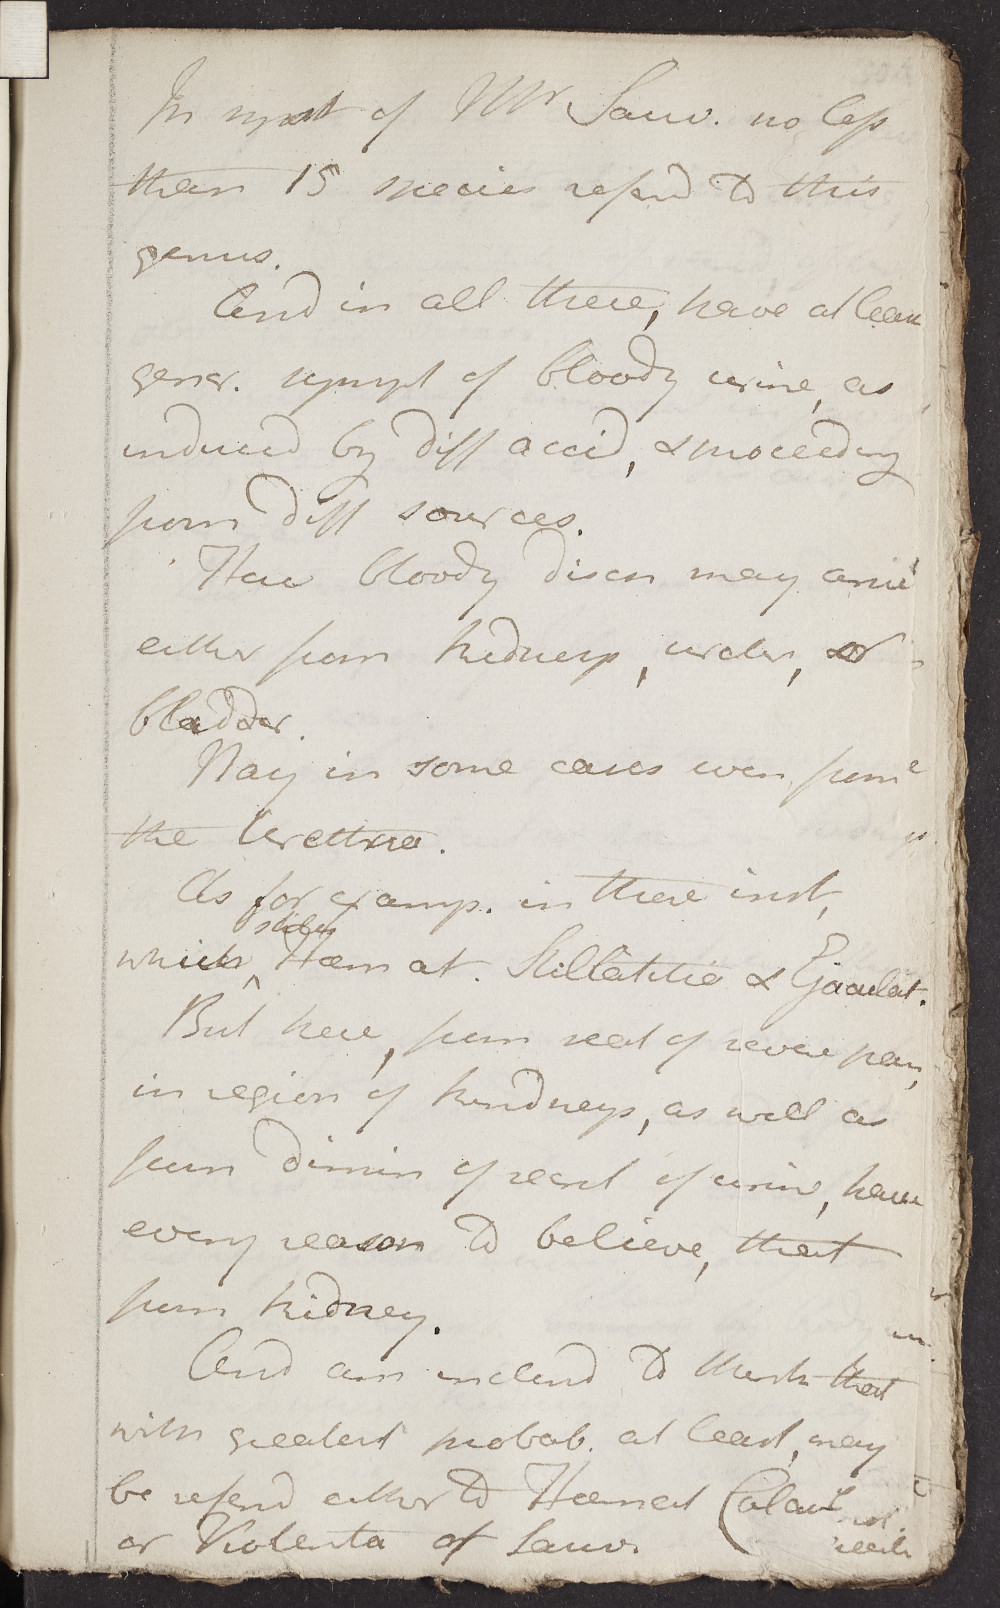 In syst of Mr Sauv. no less
than 15 species referd to this
genus.
And in all these, have at least
gener. sympt of bloody urine, as
induced by diff accid, & proceeding
from diff sources.
Thus bloody disch may arise
either from kidneys, ureter, or
bladder.
Nay in some cases even from
the Urethra.
As for examp. in these inst,
which ^ stiles Hæmat. Stillatitia & Ejaculat.
But here, from seat of severe pain,
in region of kindneys, as well as
from dimin of secret of urine, have
every reason to believe, that
from kidney.
And am inclend to think that
with greatest probab. at least, may
be referd either to Hæmat Calculosa
or Violenta of Sauv.